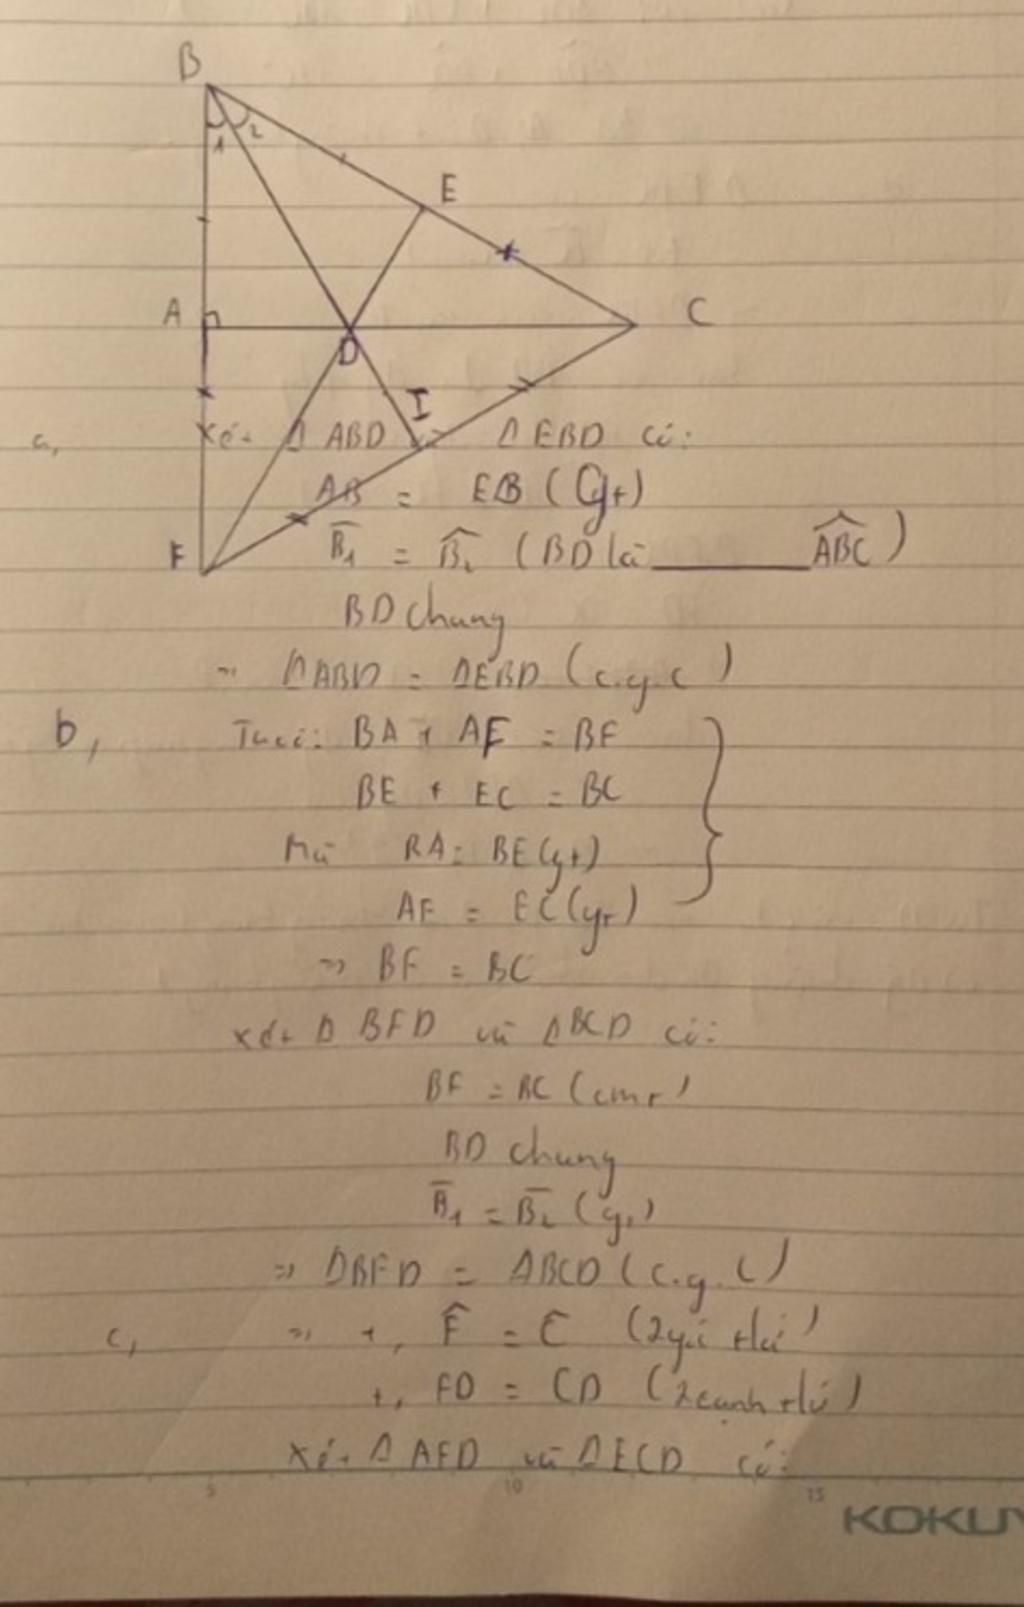 B
1 2
E
A
C
D
I
a, Xét Δ ABD Δ EBD có:
AB = EB (gt)
F
B̂1 = B̂2 (BD là ______ ÂBC)
BD chung
=> ΔABD = ΔEBD (c.g.c)
b, Ta có: BA + AF = BF
BE + EC = BC
Mà BA = BE (gt)
AF = EC (gt)
=> BF = BC
Xét Δ BFD và ΔBCD có:
BF = BC (cmt)
BD chung
B̂1 = B̂2 (gt)
=> ΔBFD = ΔBCD (c.g.c)
c, => +, F̂ = Ĉ (2 góc
+, FD = CD (2 cạnh
Xét Δ AFD và ΔECD có:
5 10 15
KOKUY